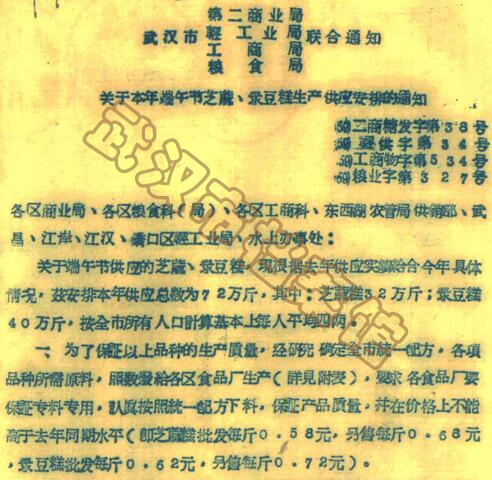 第二商业局
武汉市輕工业局联合通知
工商局
粮食局
关于本年端午节芝蔴、彔豆糕生产供应安排的通知
(59)二商糖发字第38号
(59)輕供字第34号
(59)工商物字第534号
(59)粮业字第327号
各区商业局、各区粮食科(局)、各区工商科、东西湖农管局供銷部、武
昌、江岸、江汉、礄口区輕工业局、水上办事处:
关于端午节供应的芝蔴、彔豆糕,現根据去年供应实績結合今年具体
情况,茲安排本年供应总数为72万斤,其中:芝蔴糕32万斤;彔豆糕
40万斤,按全市所有人口計算基本上每人平均四两。
一、为了保証以上品种的生产質量,經研究确定全市統一配方,各項
品种所需原料,照数發給各区食品厂生产(詳見附表),要求各食品厂要
保証专料专用,认真按照統一配方下料,保証产品質量,幷在价格上不能
高于去年同期水平(卽芝蔴糕批发每斤0.58元,另售每斤0.68元
,彔豆糕批发每斤0.62元,另售每斤0.72元)。
武汉市档案馆